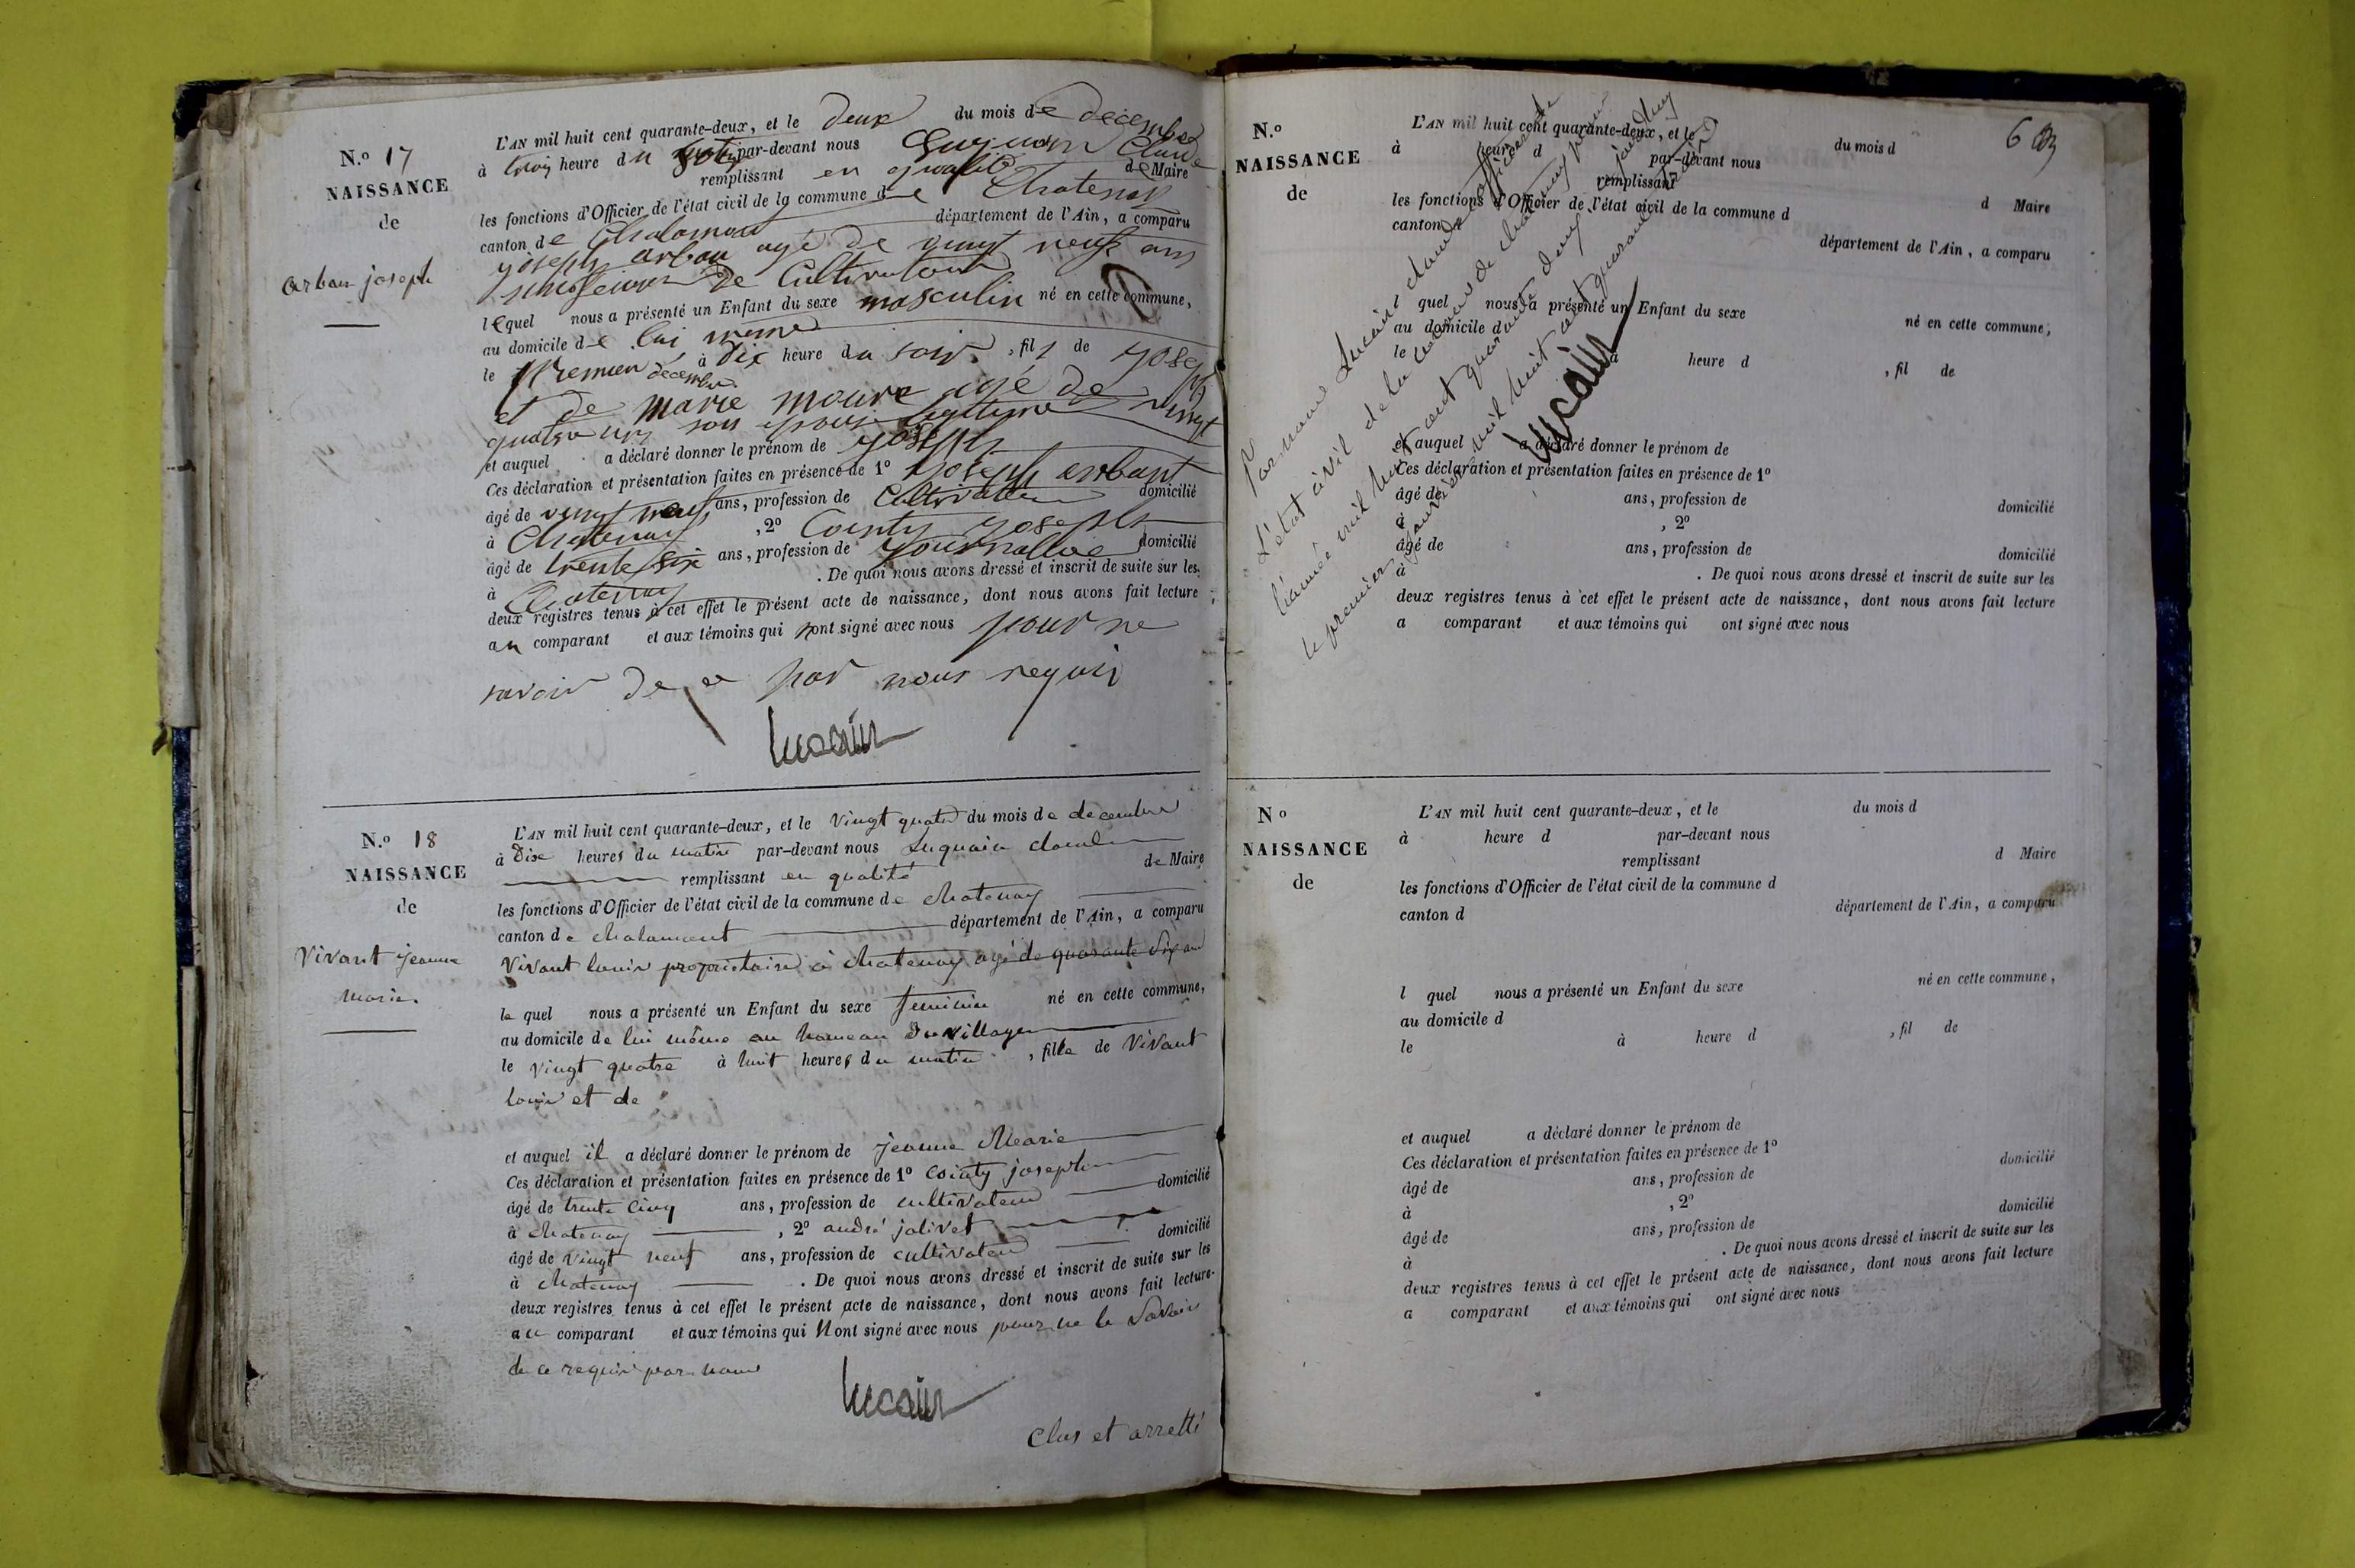 N.º 17
NAISSANCE
de
arban joseph
L'AN mil huit cent quarante-deux, et le deux du mois de décembre
à trois heure du par-devant nous Claude
remplissant en qualité de Maire
les fonctions d'Officier de l'état civil de la commune de Chatenay
canton de Chalamont département de l'Ain, a comparu
joseph arban agé de vingt neuf ans
profession de Cultivateur
lequel nous a présenté un Enfant du sexe masculin né en cette commune,
au domicile de lui meme
le premier décembre à Dix heure du soir, fils de joseph
et de marie moure agé de vingt
quatre ans son epouse legitime
et auquel a déclaré donner le prénom de joseph
Ces déclaration et présentation faites en présence de 1º joseph arbant
âgé de vingt neuf ans, profession de Cultivateur domicilié
à Chatenay, 2º Cointy joseph
âgé de trente six ans, profession de journallié domicilié
à Chatenay. De quoi nous avons dressé et inscrit de suite sur les
deux registres tenus à cet effet le présent acte de naissance, dont nous avons fait lecture
au comparant et aux témoins qui nont signé avec nous pour ne
savoir de ce par nous requis
Lucain
N.º 18
NAISSANCE
de
Vivant jeanne
marie.
L'AN mil huit cent quarante-deux, et le vingt quatre du mois de decembre
à Dix heures du matin par-devant nous Luquain claude
remplissant en qualité de Maire
les fonctions d'Officier de l'état civil de la commune de chatenay
canton de chalamont département de l'Ain, a comparu
Vivant louis propriétaire à chatenay agé de quarante six an
le quel nous a présenté un Enfant du sexe feminin né en cette commune,
au domicile de lui même au hameau du village
le vingt quatre à huit heures du matin, fille de Vivant
louis et de
et auquel il a déclaré donner le prénom de jeanne Marie
Ces déclaration et présentation faites en présence de 1º Cointy joseph
âgé de trente cinq ans, profession de cultivateur domicilié
à chatenay, 2º andré jolivet
âgé de vingt neuf ans, profession de cultivateur domicilié
à chatenay. De quoi nous avons dressé et inscrit de suite sur les
deux registres tenus à cet effet le présent acte de naissance, dont nous avons fait lecture
au comparant et aux témoins qui nont signé avec nous pour ne le savoir
de ce requis par nous
Lucain
Clos et arretté
6
N.º
NAISSANCE
de
L'AN mil huit cent quarante-deux, et le du mois d
à heure d par-devant nous
remplissant d Maire
les fonctions d'Officier de l'état civil de la commune d
canton d département de l'Ain, a comparu
l quel nous a présenté un Enfant du sexe né en cette commune,
au domicile d
le à heure d, fil de
et auquel a déclaré donner le prénom de
Ces déclaration et présentation faites en présence de 1º
âgé de ans, profession de domicilié
à, 2º
âgé de ans, profession de domicilié
à. De quoi nous avons dressé et inscrit de suite sur les
deux registres tenus à cet effet le présent acte de naissance, dont nous avons fait lecture
a comparant et aux témoins qui ont signé avec nous
Par nous Lucain claude officier de
L'état civil de la commune de chatenay pour
l'année mil huit cent quarante deux, jourdhuy
le premier janvier mil huit cent quarante trois
Lucain
Nº
NAISSANCE
de
L'AN mil huit cent quarante-deux, et le du mois d
à heure d par-devant nous
remplissant d Maire
les fonctions d'Officier de l'état civil de la commune d
canton d département de l'Ain, a comparu
l quel nous a présenté un Enfant du sexe né en cette commune,
au domicile d
le à heure d, fil de
et auquel a déclaré donner le prénom de
Ces déclaration et présentation faites en présence de 1º
âgé de ans, profession de domicilié
à, 2º
âgé de ans, profession de domicilié
à. De quoi nous avons dressé et inscrit de suite sur les
deux registres tenus à cet effet le présent acte de naissance, dont nous avons fait lecture
a comparant et aux témoins qui ont signé avec nous